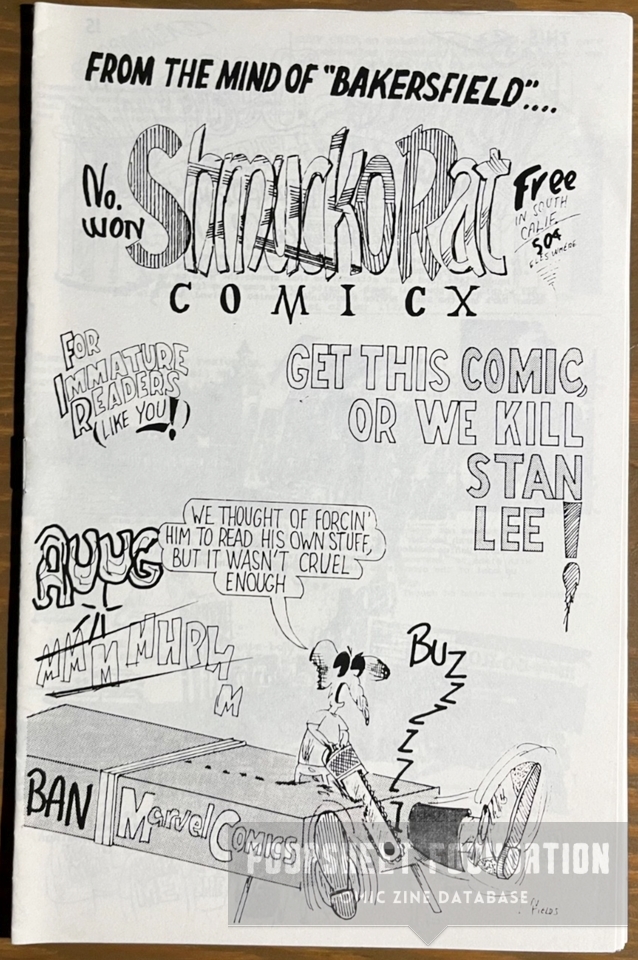 FROM THE MIND OF "BAKERSFIELD"....
No.
WON
Shmucko Rat
COMICX
Free
IN SOUTH
CALIF.
50¢
FOR
IMMATURE
READERS
(LIKE YOU!)
GET THIS COMIC,
OR WE KILL
STAN
LEE!
WE THOUGHT OF FORCIN'
HIM TO READ HIS OWN STUFF,
BUT IT WASN'T CRUEL
ENOUGH
AUUG
MMMMHRLM
BUZZZZZZ
BAN
Marvel Comics
POOPSHEET FOUNDATION
COMIC ZINE DATABASE
FIELDS